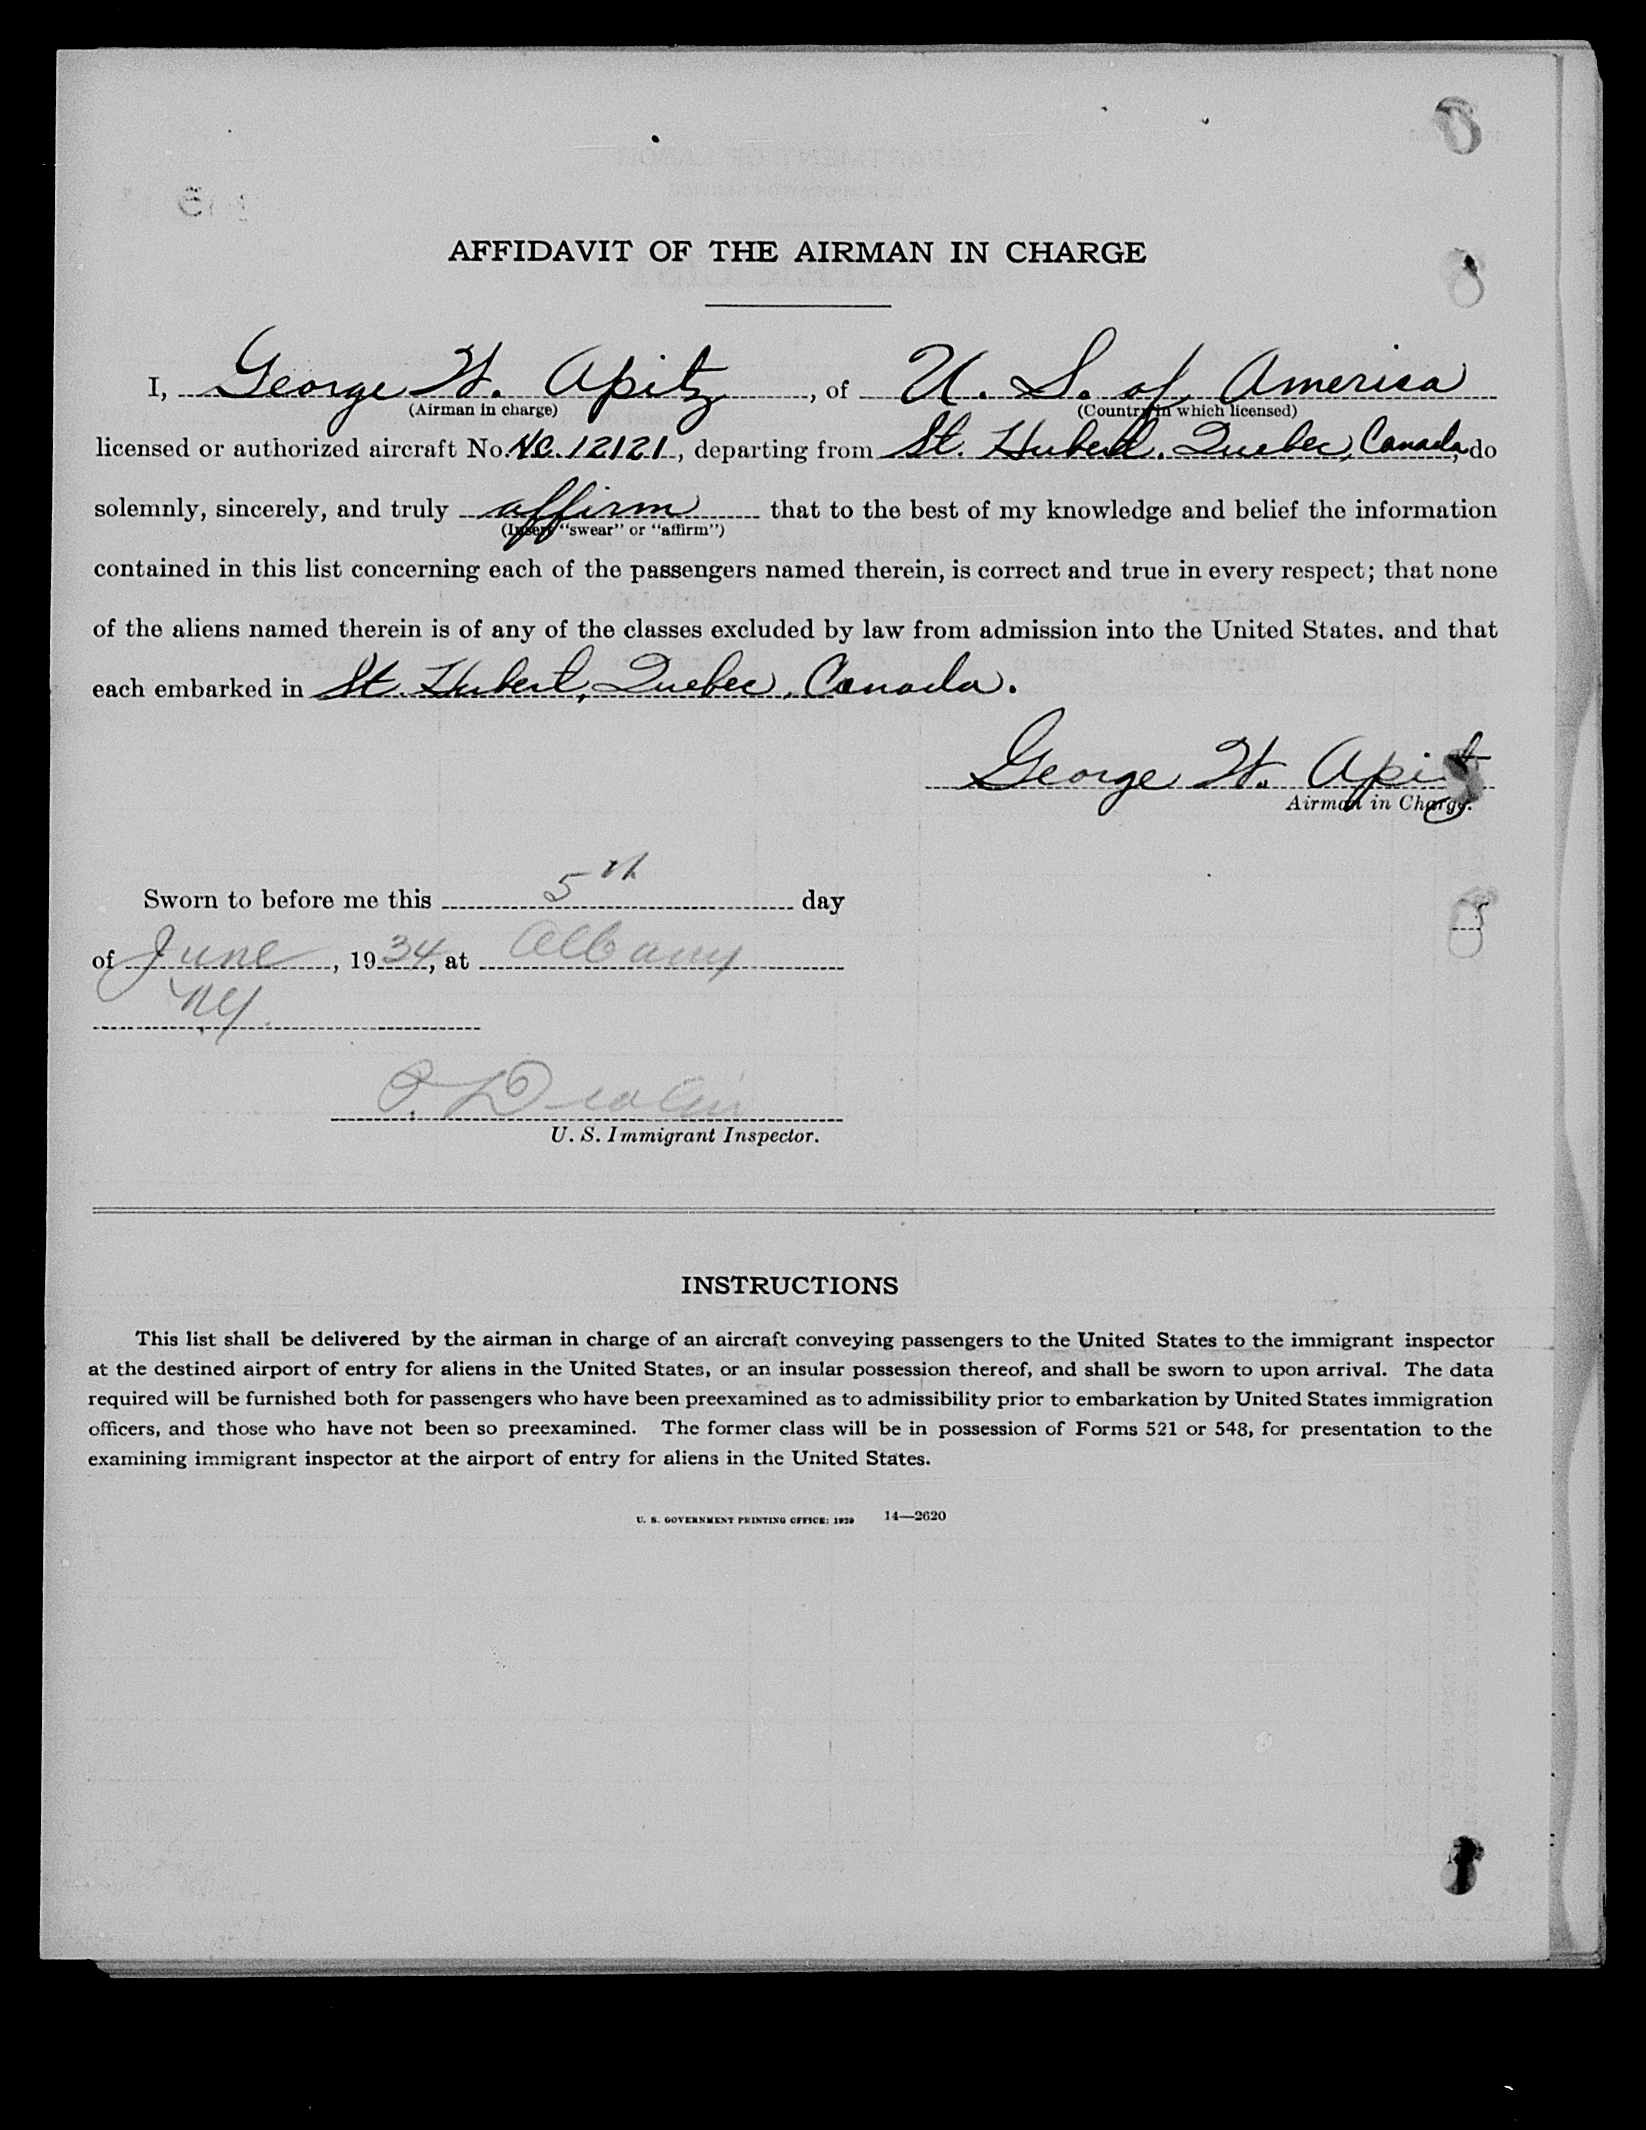 AFFIDAVIT OF THE AIRMAN IN CHARGE
I, George W. Apitz, of U. S. of America
(Airman in charge) (Country in which licensed)
licensed or authorized aircraft No. NC 12121, departing from St. Hubert, Quebec, Canada, do
solemnly, sincerely, and truly affirm that to the best of my knowledge and belief the information
(Insert "swear" or "affirm")
contained in this list concerning each of the passengers named therein, is correct and true in every respect; that none
of the aliens named therein is of any of the classes excluded by law from admission into the United States. and that
each embarked in St. Hubert, Quebec, Canada.
George W. Apitz
Airman in Charge.
Sworn to before me this 5th day
of June, 1934, at Albany
NY.
U. S. Immigrant Inspector.
INSTRUCTIONS
This list shall be delivered by the airman in charge of an aircraft conveying passengers to the United States to the immigrant inspector
at the destined airport of entry for aliens in the United States, or an insular possession thereof, and shall be sworn to upon arrival. The data
required will be furnished both for passengers who have been preexamined as to admissibility prior to embarkation by United States immigration
officers, and those who have not been so preexamined. The former class will be in possession of Forms 521 or 548, for presentation to the
examining immigrant inspector at the airport of entry for aliens in the United States.
U. S. GOVERNMENT PRINTING OFFICE: 1929 14—2620